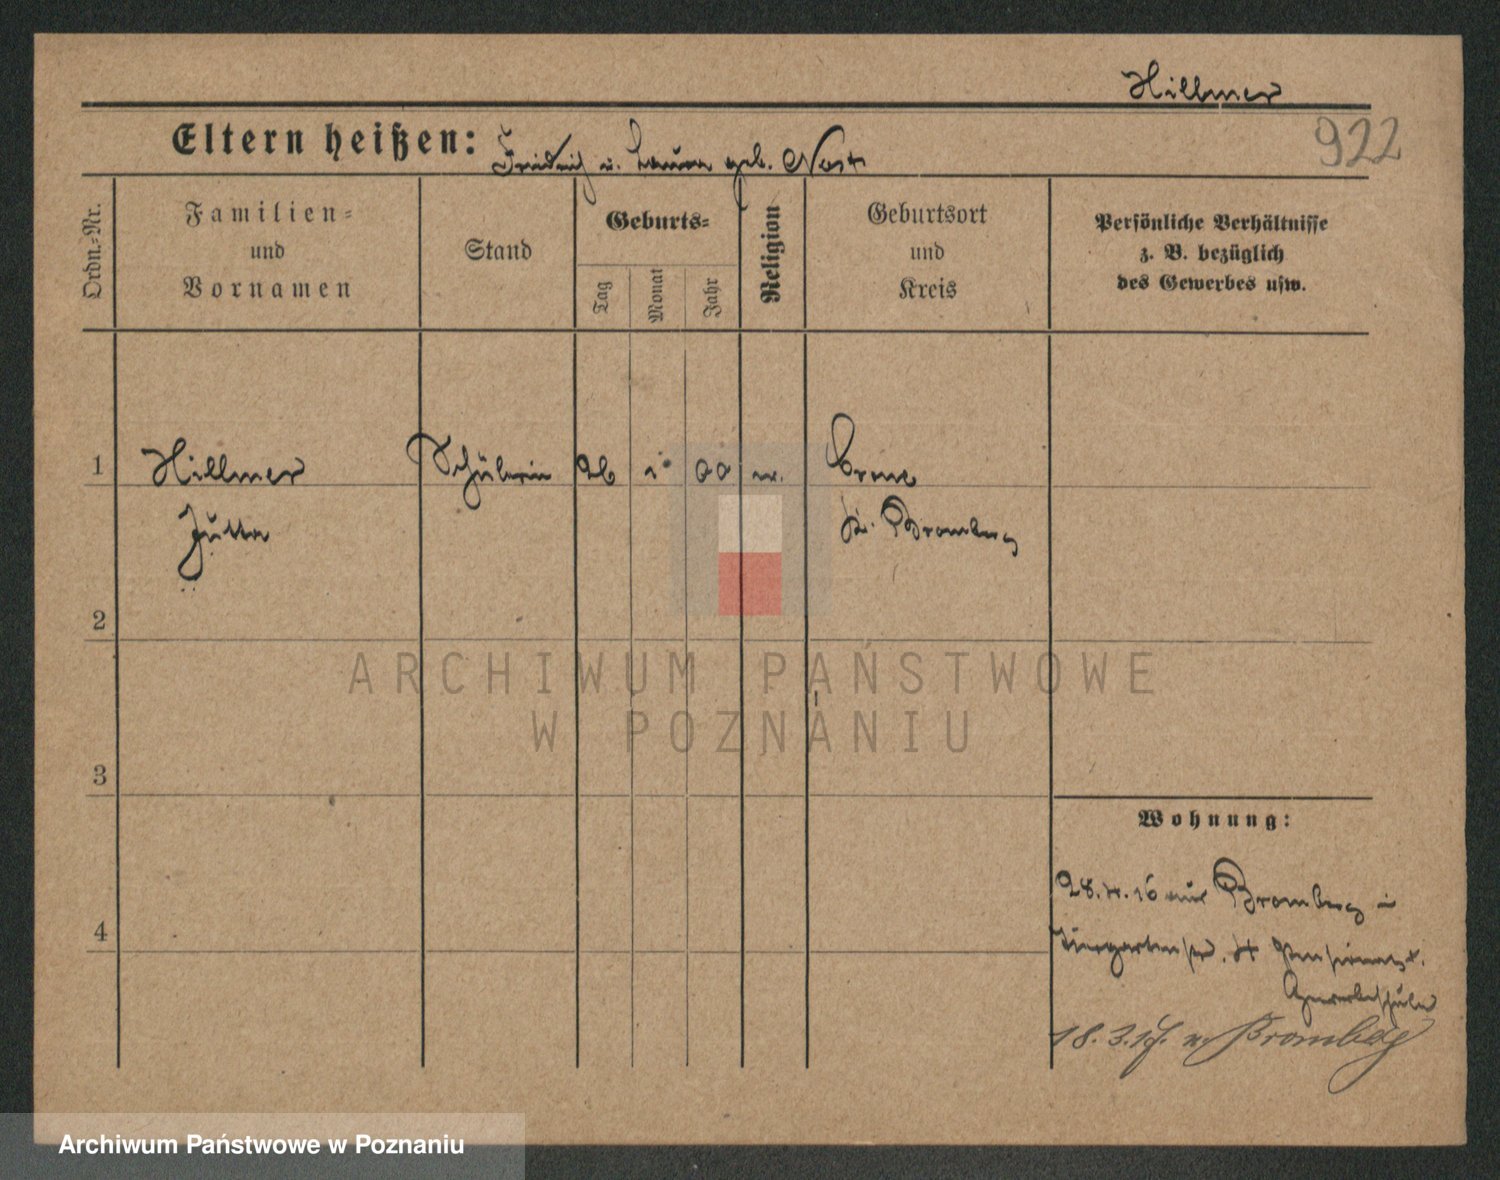 Hillmer
922
Eltern heißen: Friedrich u. Laura geb. Nast
Ordn.-Nr.
Familien-
und
Vornamen
Stand
Geburts-
Tag
Monat
Jahr
Religion
Geburtsort
und
Kreis
Persönliche Verhältnisse
z. B. bezüglich
des Gewerbes usw.
1
Hillmer
Schülerin
26
1
00
Crone
Jutta
Kr. Bromberg
2
ARCHIWUM PAŃSTWOWE
W POZNANIU
3
Wohnung:
28.4.16 aus Bromberg
4
Tiergartenstr. 4 Pensionat
Gewerbeschule
18.3.17. n. Bromberg
Archiwum Państwowe w Poznaniu